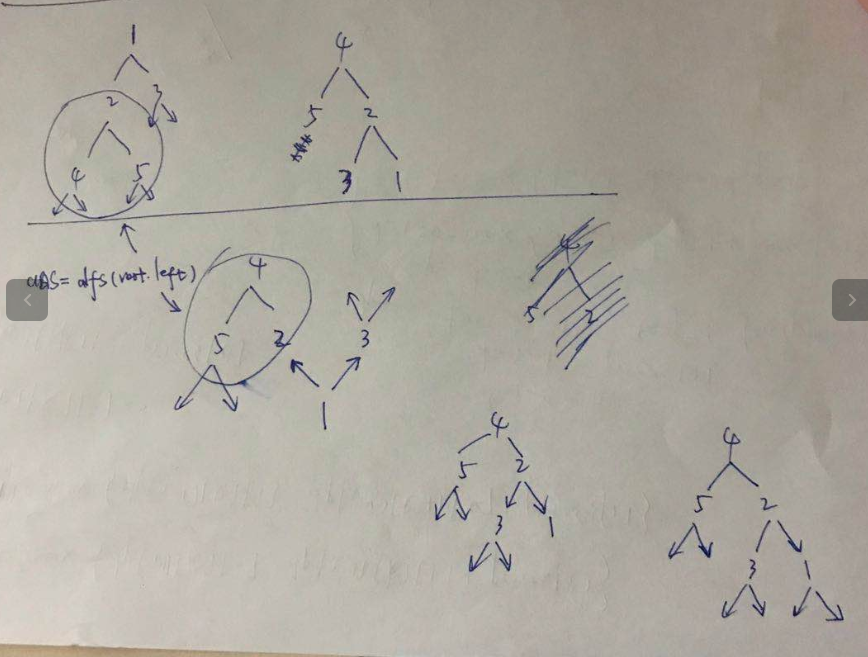 1
2 3
4 5
4
5 2
3 1
ans = dfs(root.left)
4
5 2 3
1
4
5 2
4
5 2
3 1
4
5 2
3 1